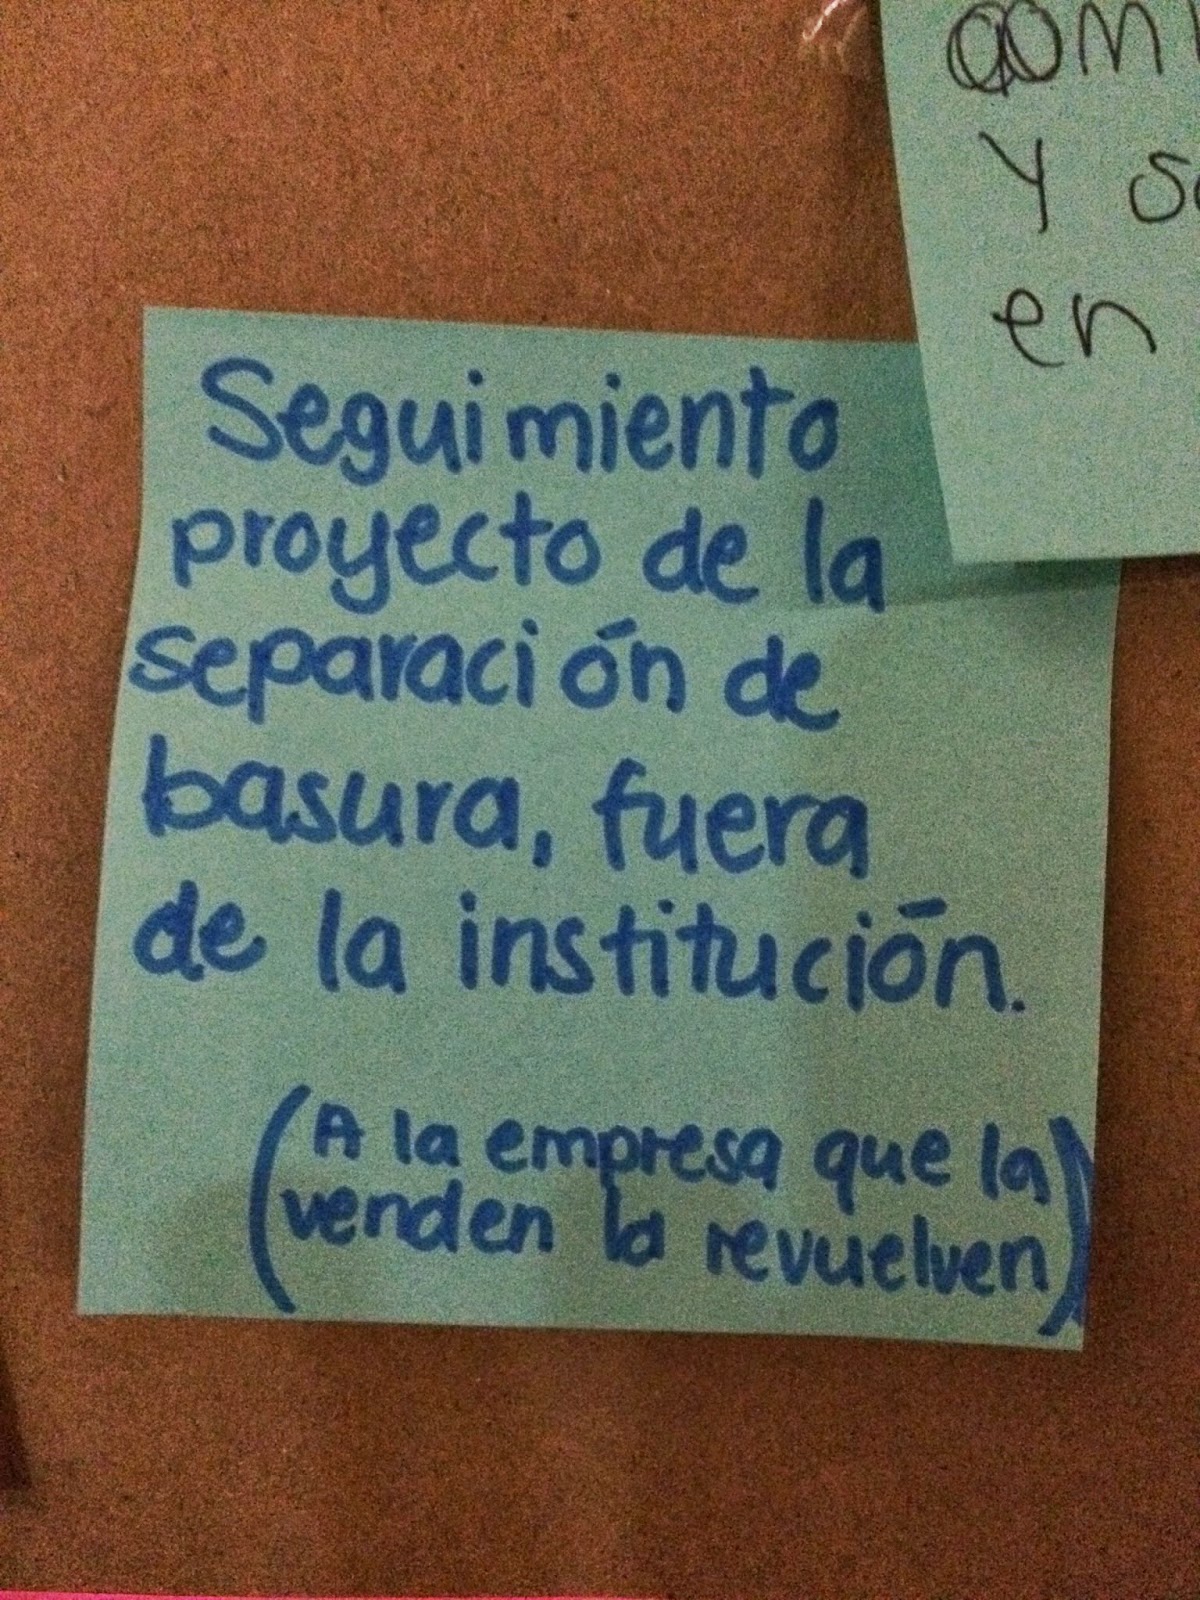 Y
en
Seguimiento
proyecto de la
separación de
basura, fuera
de la institución.
(A la empresa que la
venden la revuelven)